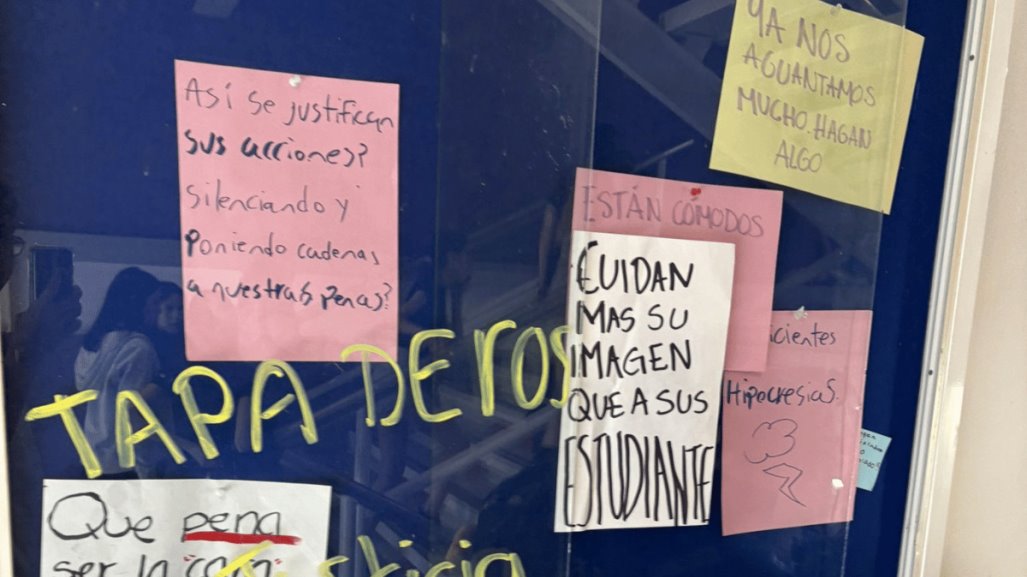 Así se justifican
sus acciones?
Silenciando y
Poniendo cadenas
a nuestras penas?
YA NOS
AGUANTAMOS
MUCHO. HAGAN
ALGO
ESTÁN CÓMODOS
CUIDAN
MAS SU
IMAGEN
QUE A SUS
ESTUDIANTE
cientes
Hipocresias.
TAPADEROS
Que pena
ser la "casa"
Justicia